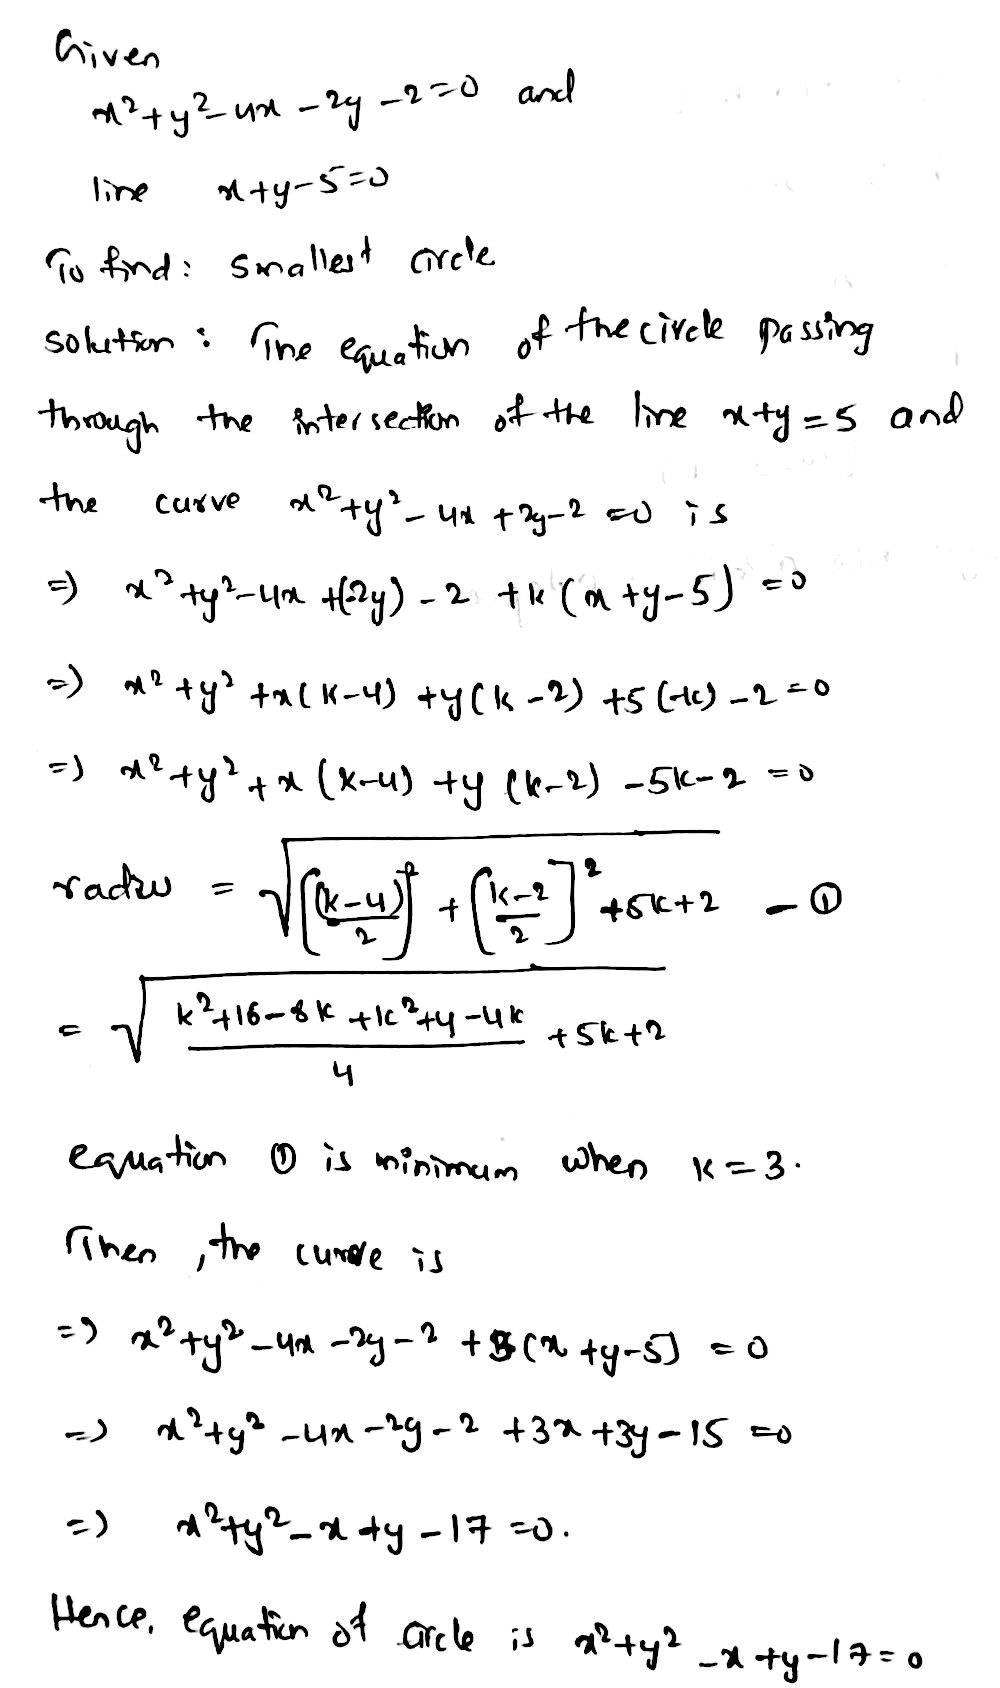 Given
x²+y²-4x-2y-2=0 and
line x+y-5=0
To find: smallest circle
solution: The equation of the circle passing
through the intersection of the line x+y=5 and
the curve x²+y²-4x+2y-2=0 is
=) x²+y²-4x+(-2y)-2+k(x+y-5)=0
=) x²+y²+x(k-4)+y(k-2)+5(-k)-2=0
=) x²+y²+x(k-4)+y(k-2)-5k-2=0
radius = √([(k-4)/2]²+[(k-2)/2]²+5k+2) - ①
= √((k²+16-8k+k²+4-4k)/4+5k+2)
equation ① is minimum when k=3.
Then, the curve is
=) x²+y²-4x-2y-2+3(x+y-5)=0
=) x²+y²-4x-2y-2+3x+3y-15=0
=) x²+y²-x+y-17=0.
Hence, equation of circle is x²+y²-x+y-17=0